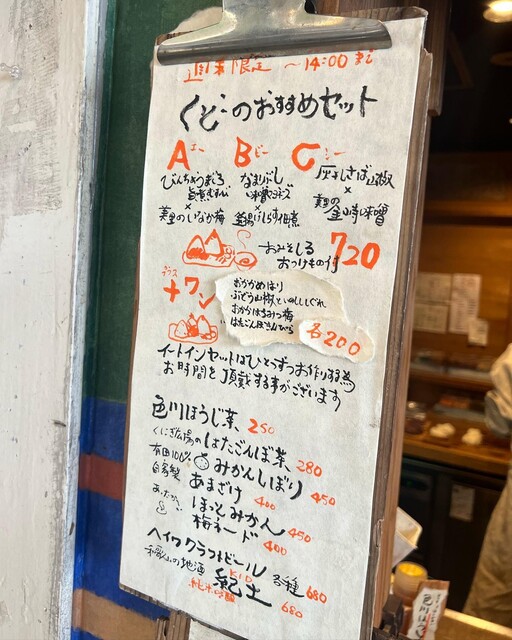 週末限定 〜14:00まで
くどのおすすめセット
A エー B ビー C シー
びんちょうまぐろ
旨煮むすび
×
美里のいなか梅
なまりぶし
味噌マヨネーズ
×
釜揚げしらす佃煮
灰干しさば山椒
×
美里の
金山寺味噌
おみそしる
おつけもの付
720
プラス
+ワン
おかかめはり
ぶどう山椒といのししぐれ
おかかはちみつ梅
はたごんぼきんぴら
各200
イートインセットはひとつずつお作りする為
お時間を頂戴する事がございます
色川ほうじ茶 250
くにぎ広場の はたごんぼ茶 280
有田100% みかんしぼり 450
自家製 あまざけ 400
あったかい ほっとみかん 450
梅ネード 400
ヘイワクラフトビール 各種 680
和歌山の地酒 KID 紀土
純米吟醸 680
色川ほうじ